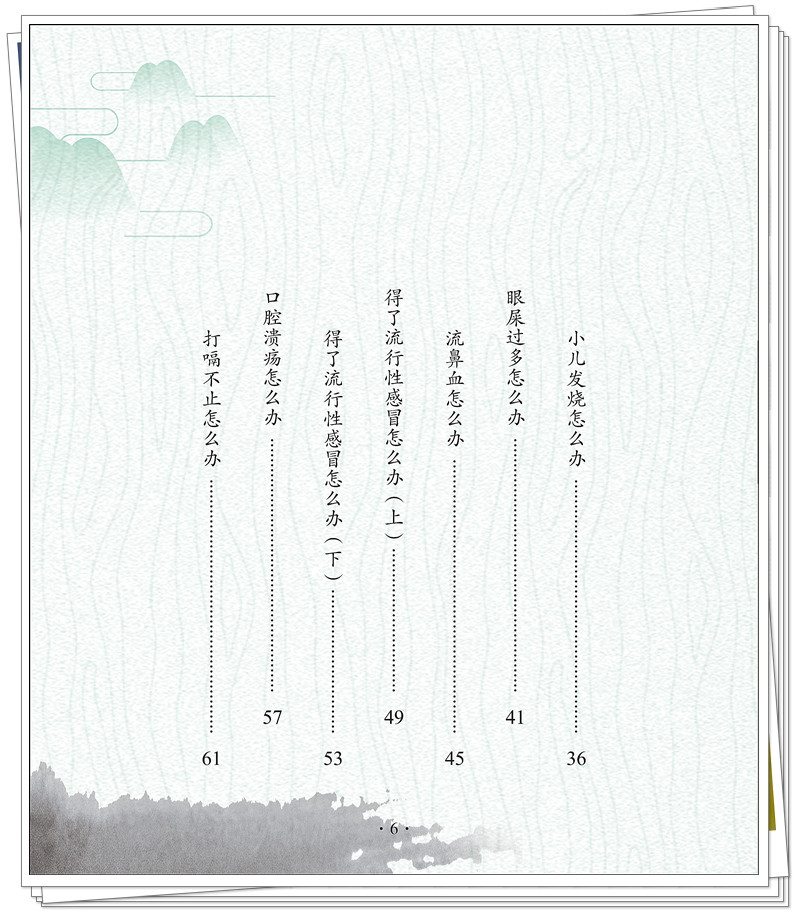 小儿发烧怎么办 36
眼屎过多怎么办 41
流鼻血怎么办 45
得了流行性感冒怎么办（上） 49
得了流行性感冒怎么办（下） 53
口腔溃疡怎么办 57
打嗝不止怎么办 61
·6·